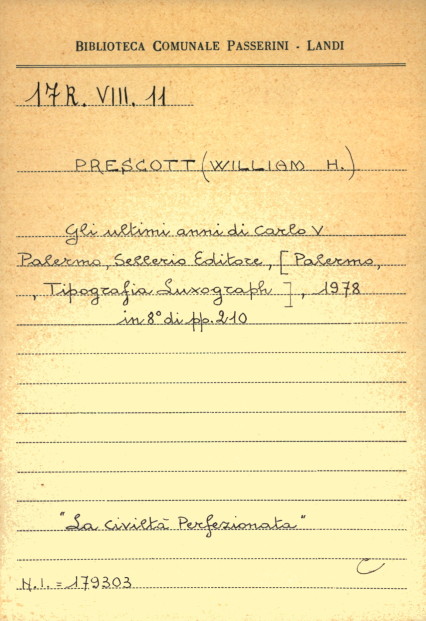 BIBLIOTECA COMUNALE PASSERINI - LANDI
17R. VIII. 11
PRESCOTT (WILLIAM H.)
Gli ultimi anni di Carlo V
Palermo, Sellerio Editore, [Palermo,
, Tipografia Luxograph], 1978
in 8° di pp. 210
"La civiltà Perfezionata"
C
N.I. = 179303